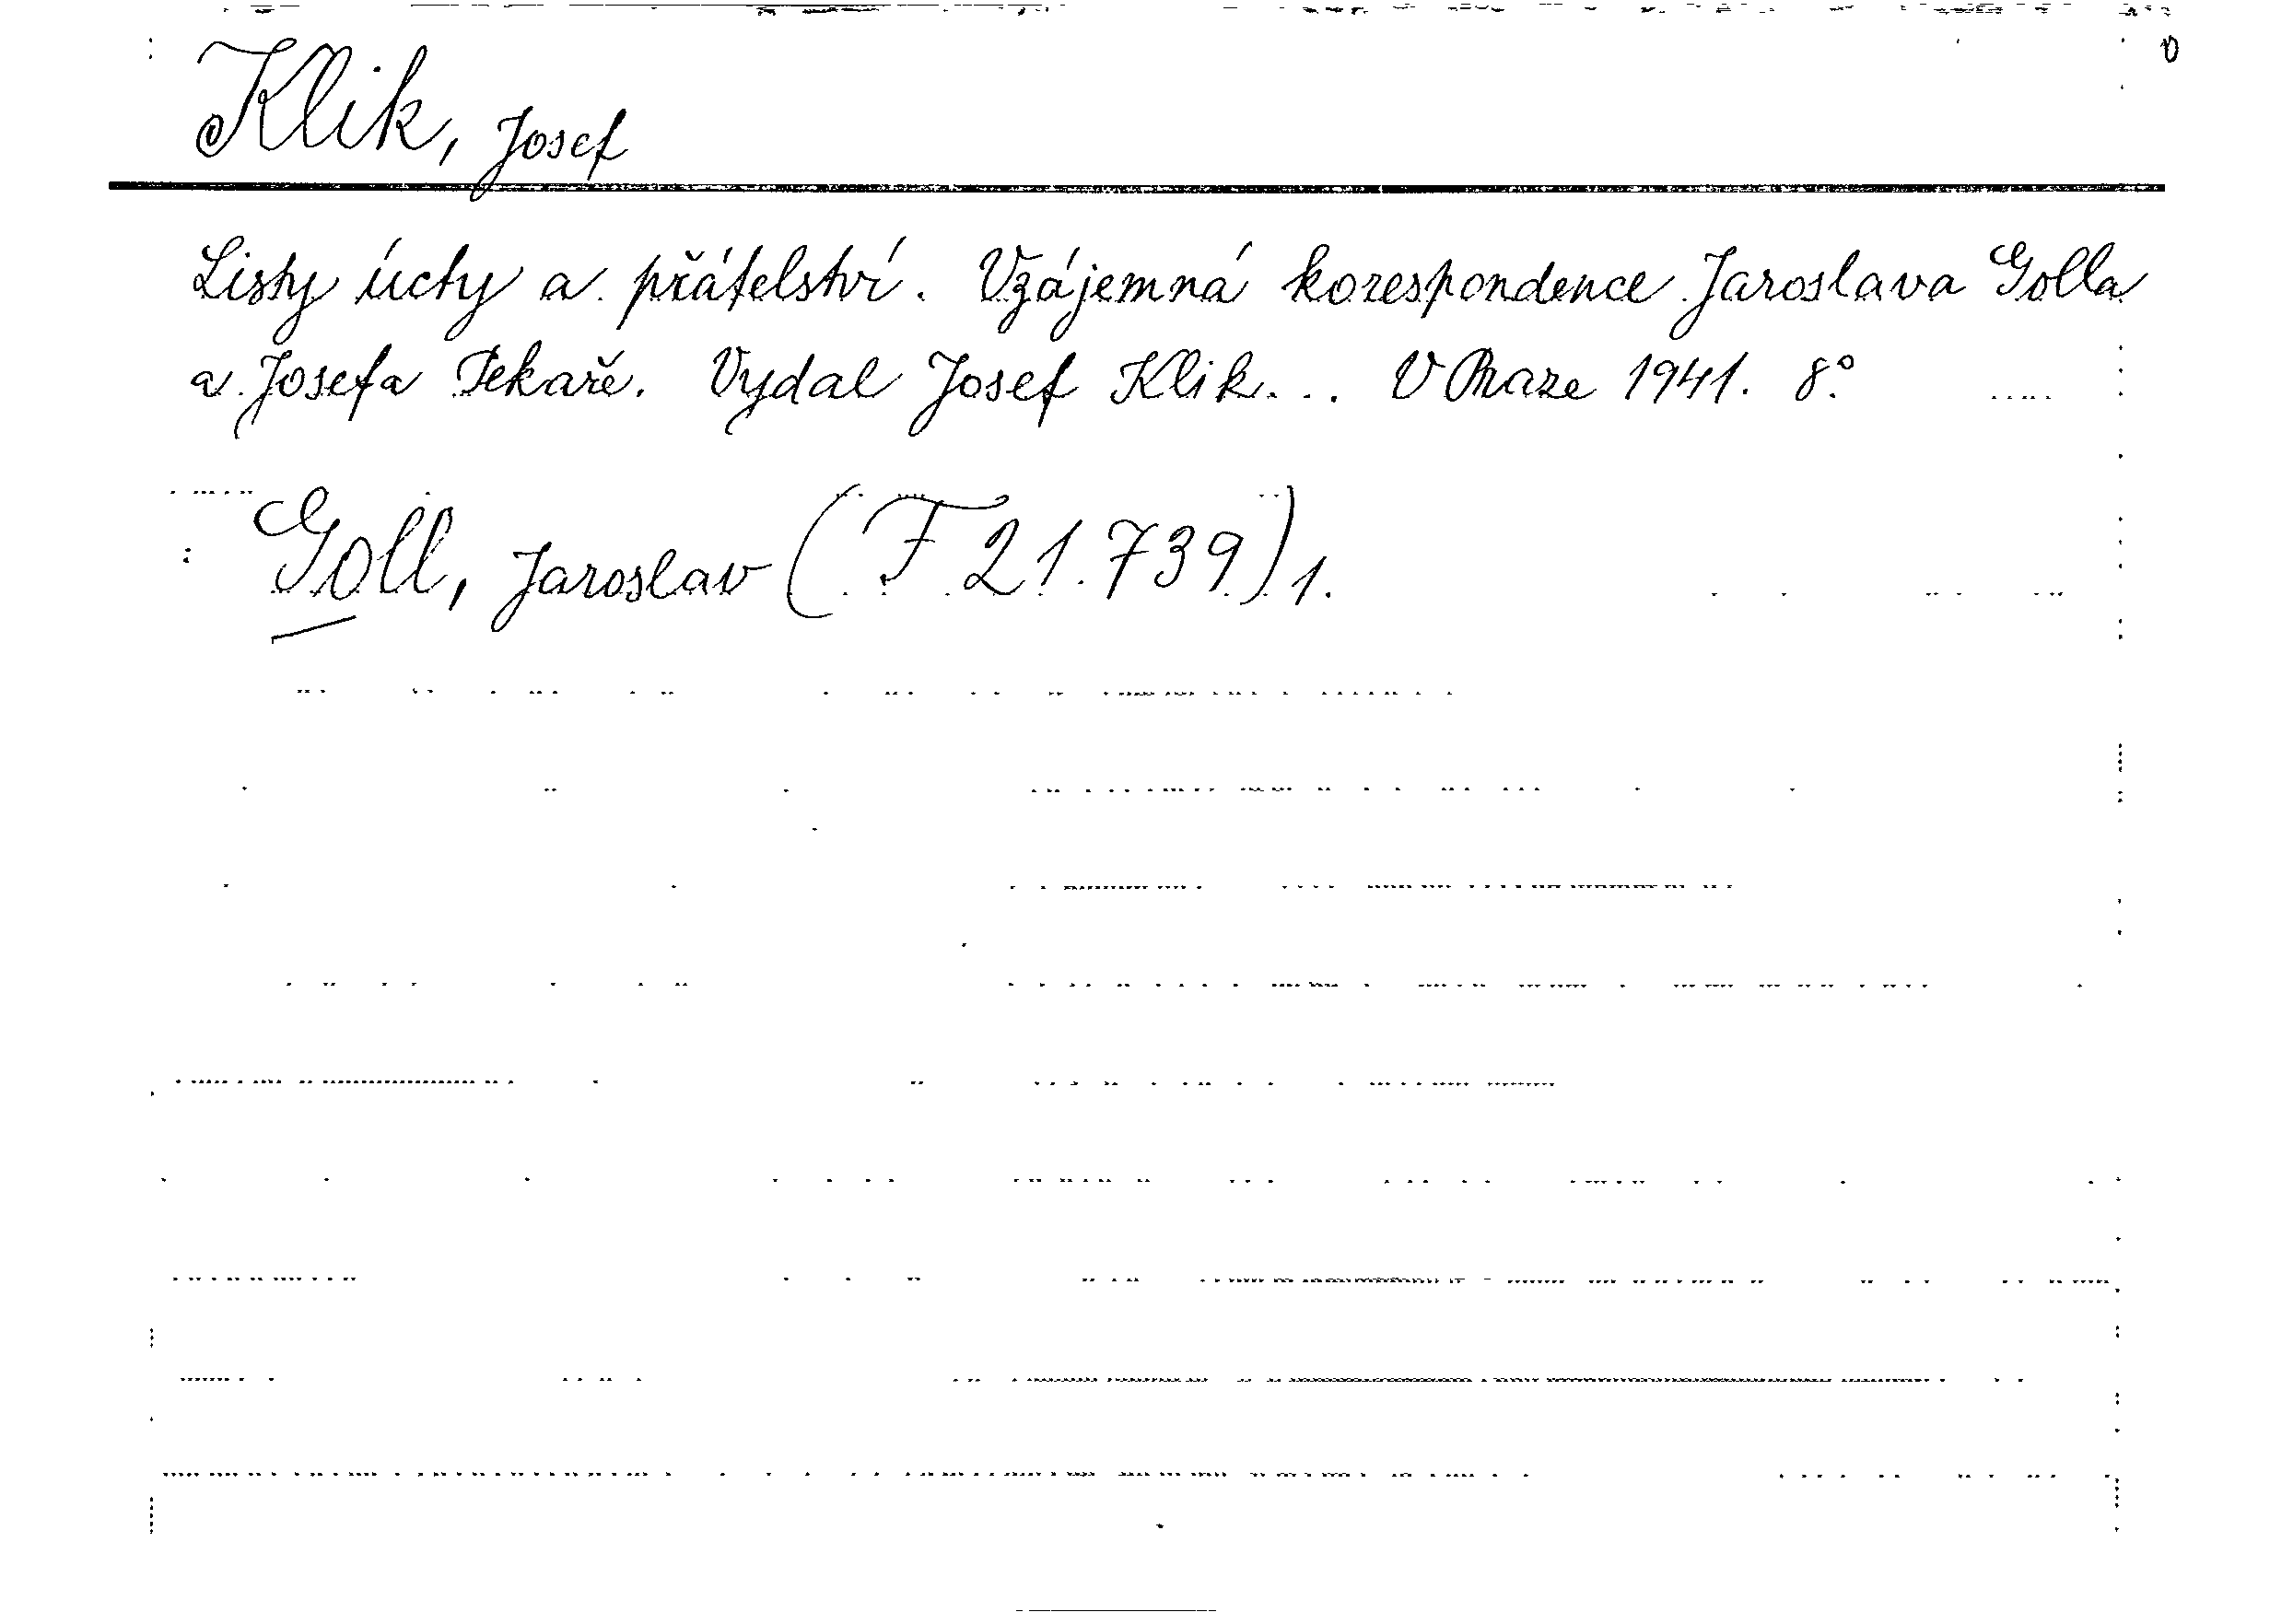 Klik, Josef
Listy úcty a přátelství. Vzájemná korespondence Jaroslava Golla
a Josefa Pekaře. Vydal Josef Klik... V Praze 1941. 8°.
Goll, Jaroslav (F 21.739) 1.